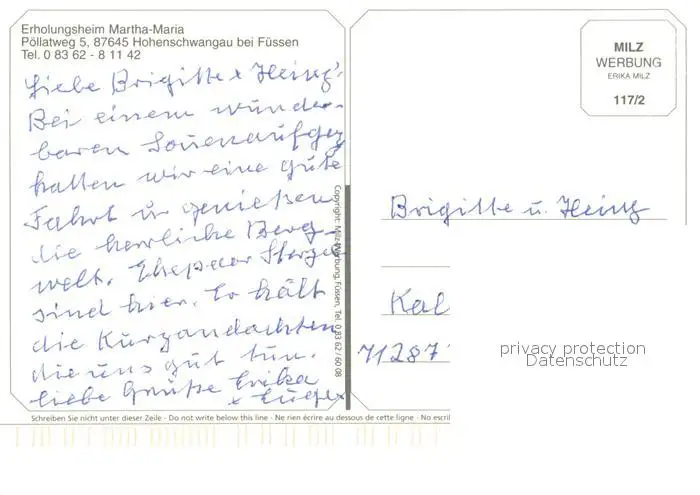 Erholungsheim Martha-Maria
Pöllatweg 5, 87645 Hohenschwangau bei Füssen
Tel. 0 83 62 - 8 11 42
Liebe Brigitte + Heinz!
Bei einem wunder-
baren Sonenaufgang
hatten wir eine gute
Fahrt u. genießen
die herrliche Berg-
welt. Ehepaar
sind hier. Er hält
die Kurzandachten
die uns gut tun.
Liebe Grüße Erika
+
Copyright: Milz-Werbung, Füssen, Tel. 0 83 62 / 60 08
MILZ
WERBUNG
ERIKA MILZ
117/2
Brigitte u. Heinz
Kal
71287
privacy protection
Datenschutz
Schreiben Sie nicht unter dieser Zeile - Do not write below this line - Ne rien écrire au dessous de cette ligne - No escri